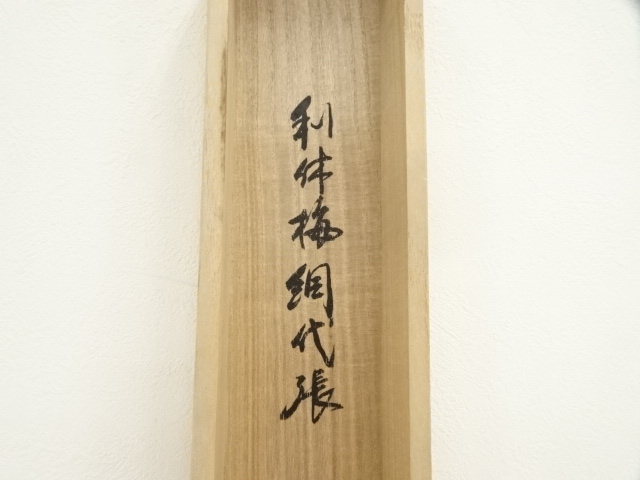 利休梅網代張